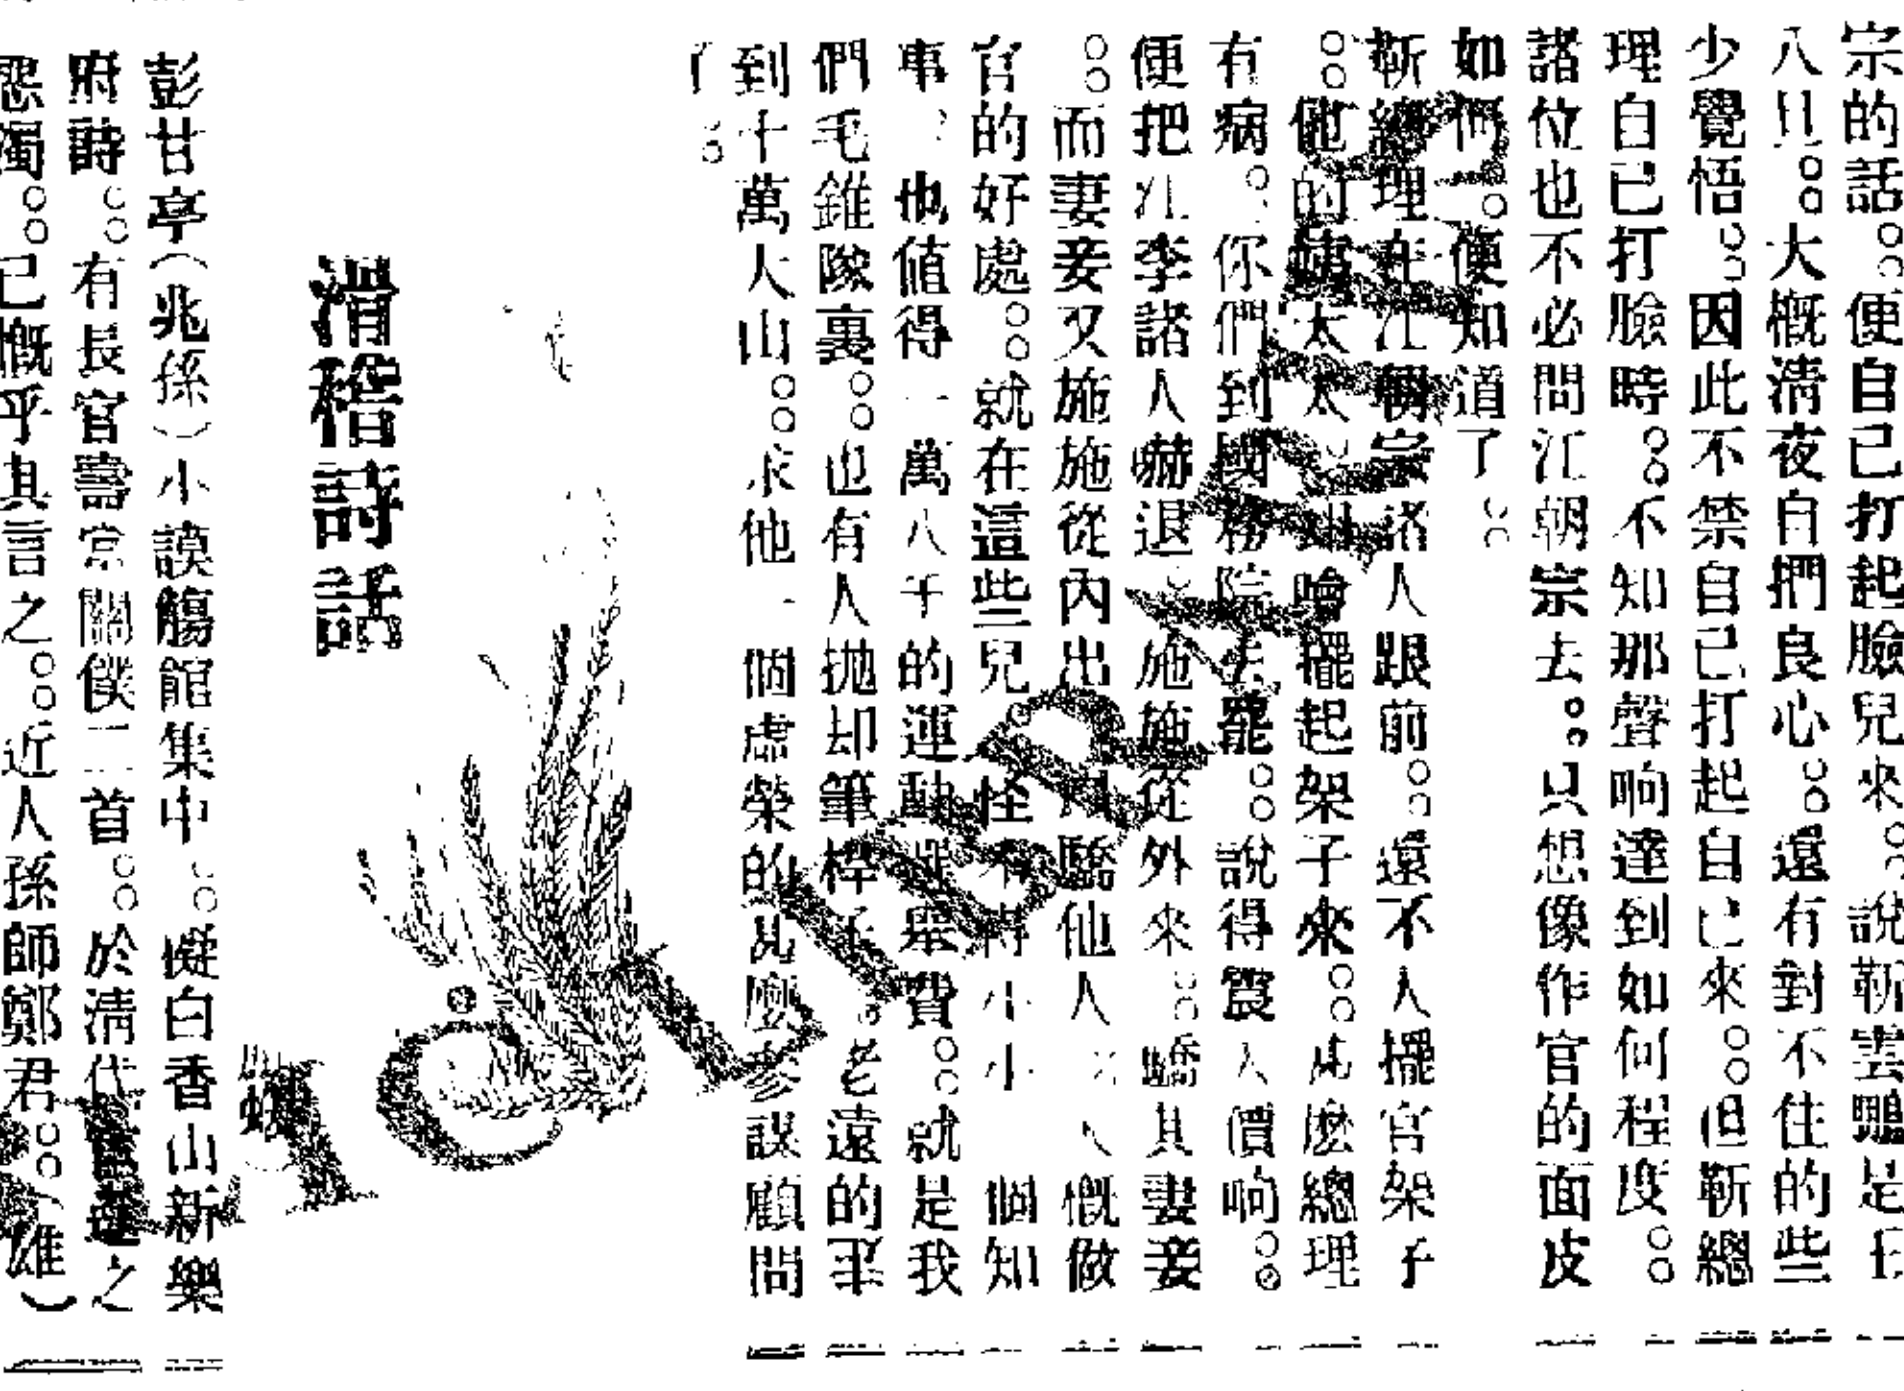 宗的話。便自己打起臉兒來。說靳雲鵬是王
八旦。大概清夜自捫良心。還有對不住的些
少覺悟。因此不禁自己打起自己來。但靳總
理自己打臉時。不知那聲响達到如何程度。
諸位也不必問江朝宗去。只想像作官的面皮
如何。便知道了。
靳總理在江朝宗諸人跟前。還不人擺官架子
。他的姨太太。擺起架子來。麽總理
有病。你們到國務院去罷。說得震人價响。
便把江李諸人嚇退。施施從外來。驕其妻妾
。而妻妾又施施從內出。驕他人。人慨做
官的好處。就在這些兒。怪不得小小一個知
事、也値得一萬八千的運動選舉費。就是我
們毛錐隊裏。也有人拋却筆桿子。老遠的
到十萬大山。求他一個虛榮的甚麽參謀顧問
了。
滑稽詩話
彭甘亭（兆孫）小謨觴館集中。擬白香山新樂
府詩。有長官壽常關僕二首。於清代之
濁。已慨乎其言之。近人孫師鄭君。（雄）